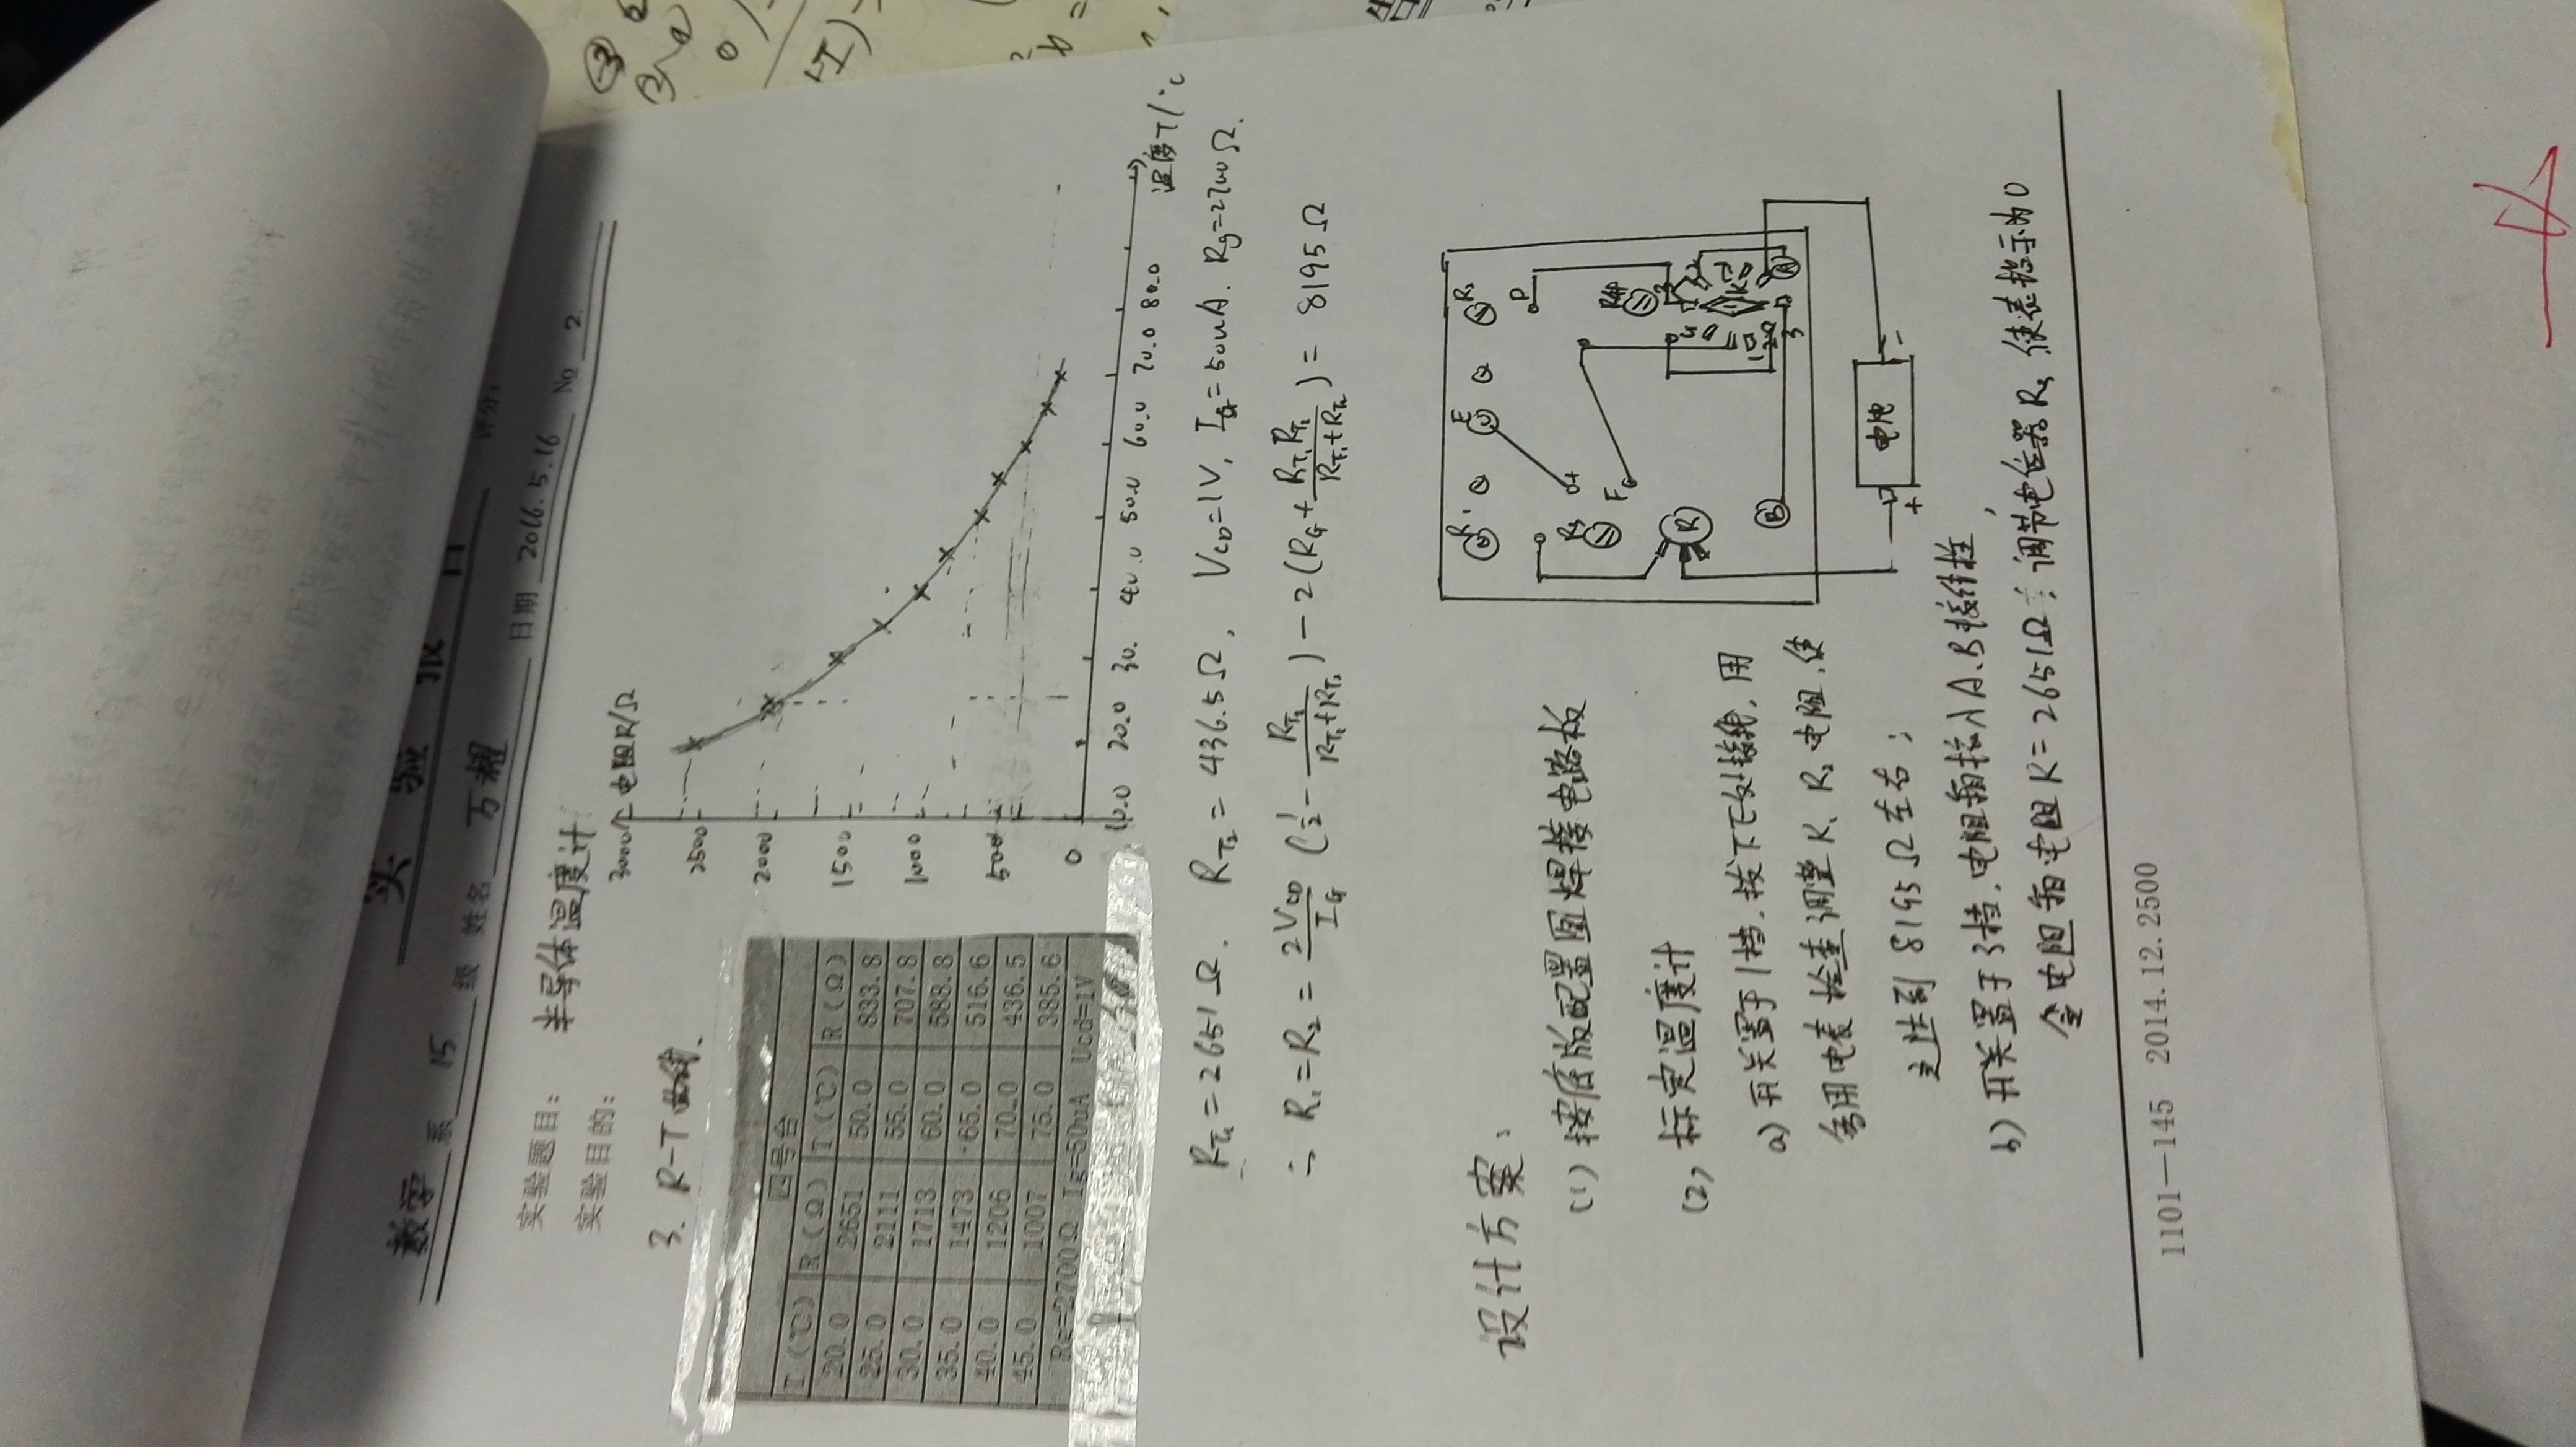 实 验 报 告
评分:
数学 系 15 级 姓名 万耀 日期 2016.5.16 No 2
实验题目: 半导体温度计
实验目的:
3. R-T曲线.
四号台
T(℃) R(Ω) T(℃) R(Ω)
20.0 2651 50.0 833.8
25.0 2111 55.0 707.8
30.0 1713 60.0 588.8
35.0 1473 65.0 516.6
40.0 1206 70.0 436.5
45.0 1007 75.0 385.6
Rg=2700Ω Ig=50uA Ucd=1V
电阻R/Ω
3000
2500
2000
1500
1000
500
0
10.0 20.0 30. 40.0 50.0 60.0 70.0 80.0
温度T/℃
RT₁=2651Ω. RT₂=436.5Ω, VCD=1V, IG=50uA. Rg=2700Ω.
∴ R₁=R₂= 2VCD/IG (1/2 - RT₂/(RT₁+RT₂)) - 2(RG + RT₁RT₂/(RT₁+RT₂)) = 8195Ω
设计方案.
(1) 按底版配置图焊接电路板
(2) 标定温度计
a) 开关置于1档.拨下E处接线,用
多用电表检查调整R₁ R₂电阻,使
之达到8195Ω左右;
b) 开关置于3档.电阻箱接入A.B接线柱,
令电阻箱电阻R=2651Ω; 调节电位器R₃ 使表指示为0
R₁ E R₂
D
R₃ F R₄
R
B A
电池
+ -
1101—145 2014.12.2500